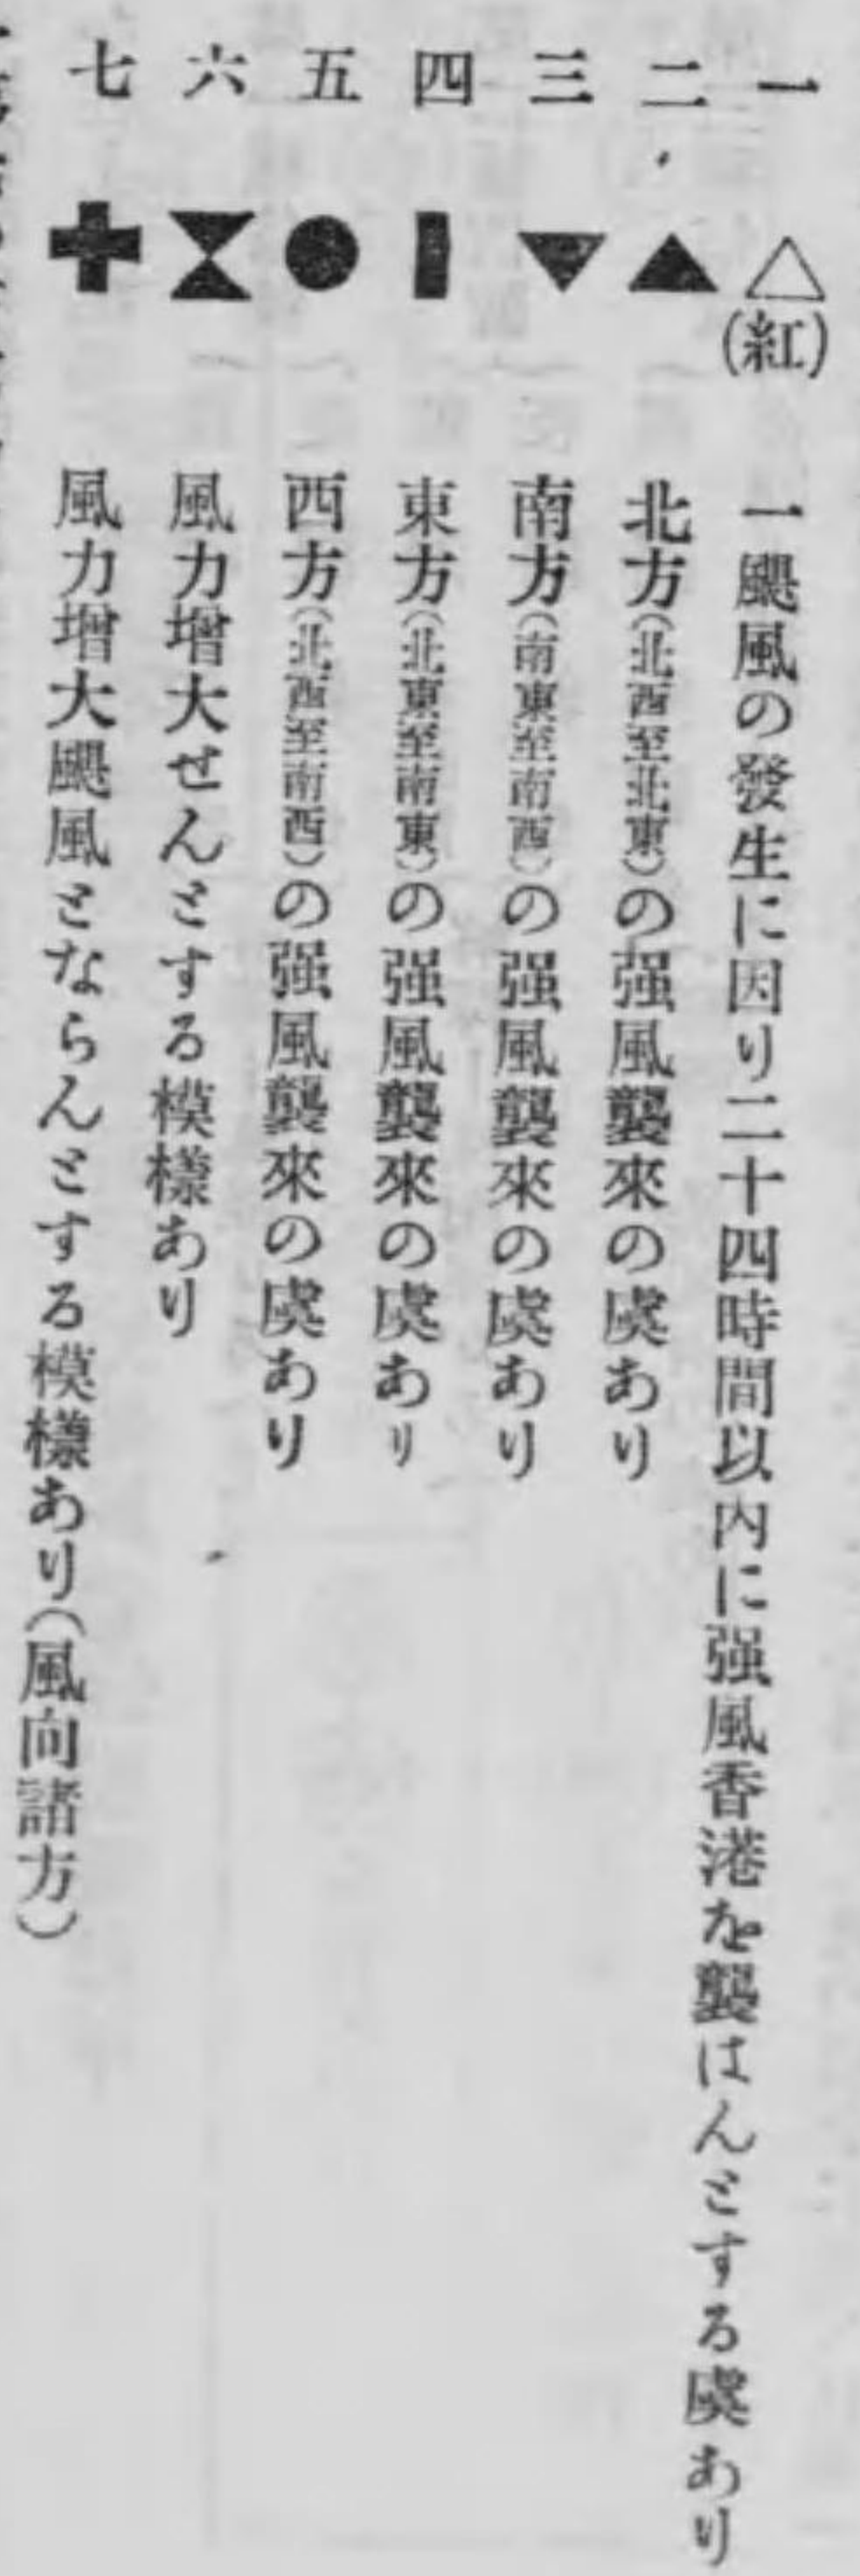 一 △(紅) 一颶風の發生に因り二十四時間以內に强風香港を襲はんとする虞あり
二 ▲ 北方(北西至北東)の强風襲來の虞あり
三 ▼ 南方(南東至南西)の强風襲來の虞あり
四 ▮ 東方(北東至南東)の强風襲來の虞あり
五 ● 西方(北西至南西)の强風襲來の虞あり
六 ⧗ 風力增大せんとする模樣あり
七 ✚ 風力增大颶風とならんとする模樣あり(風向諸方)